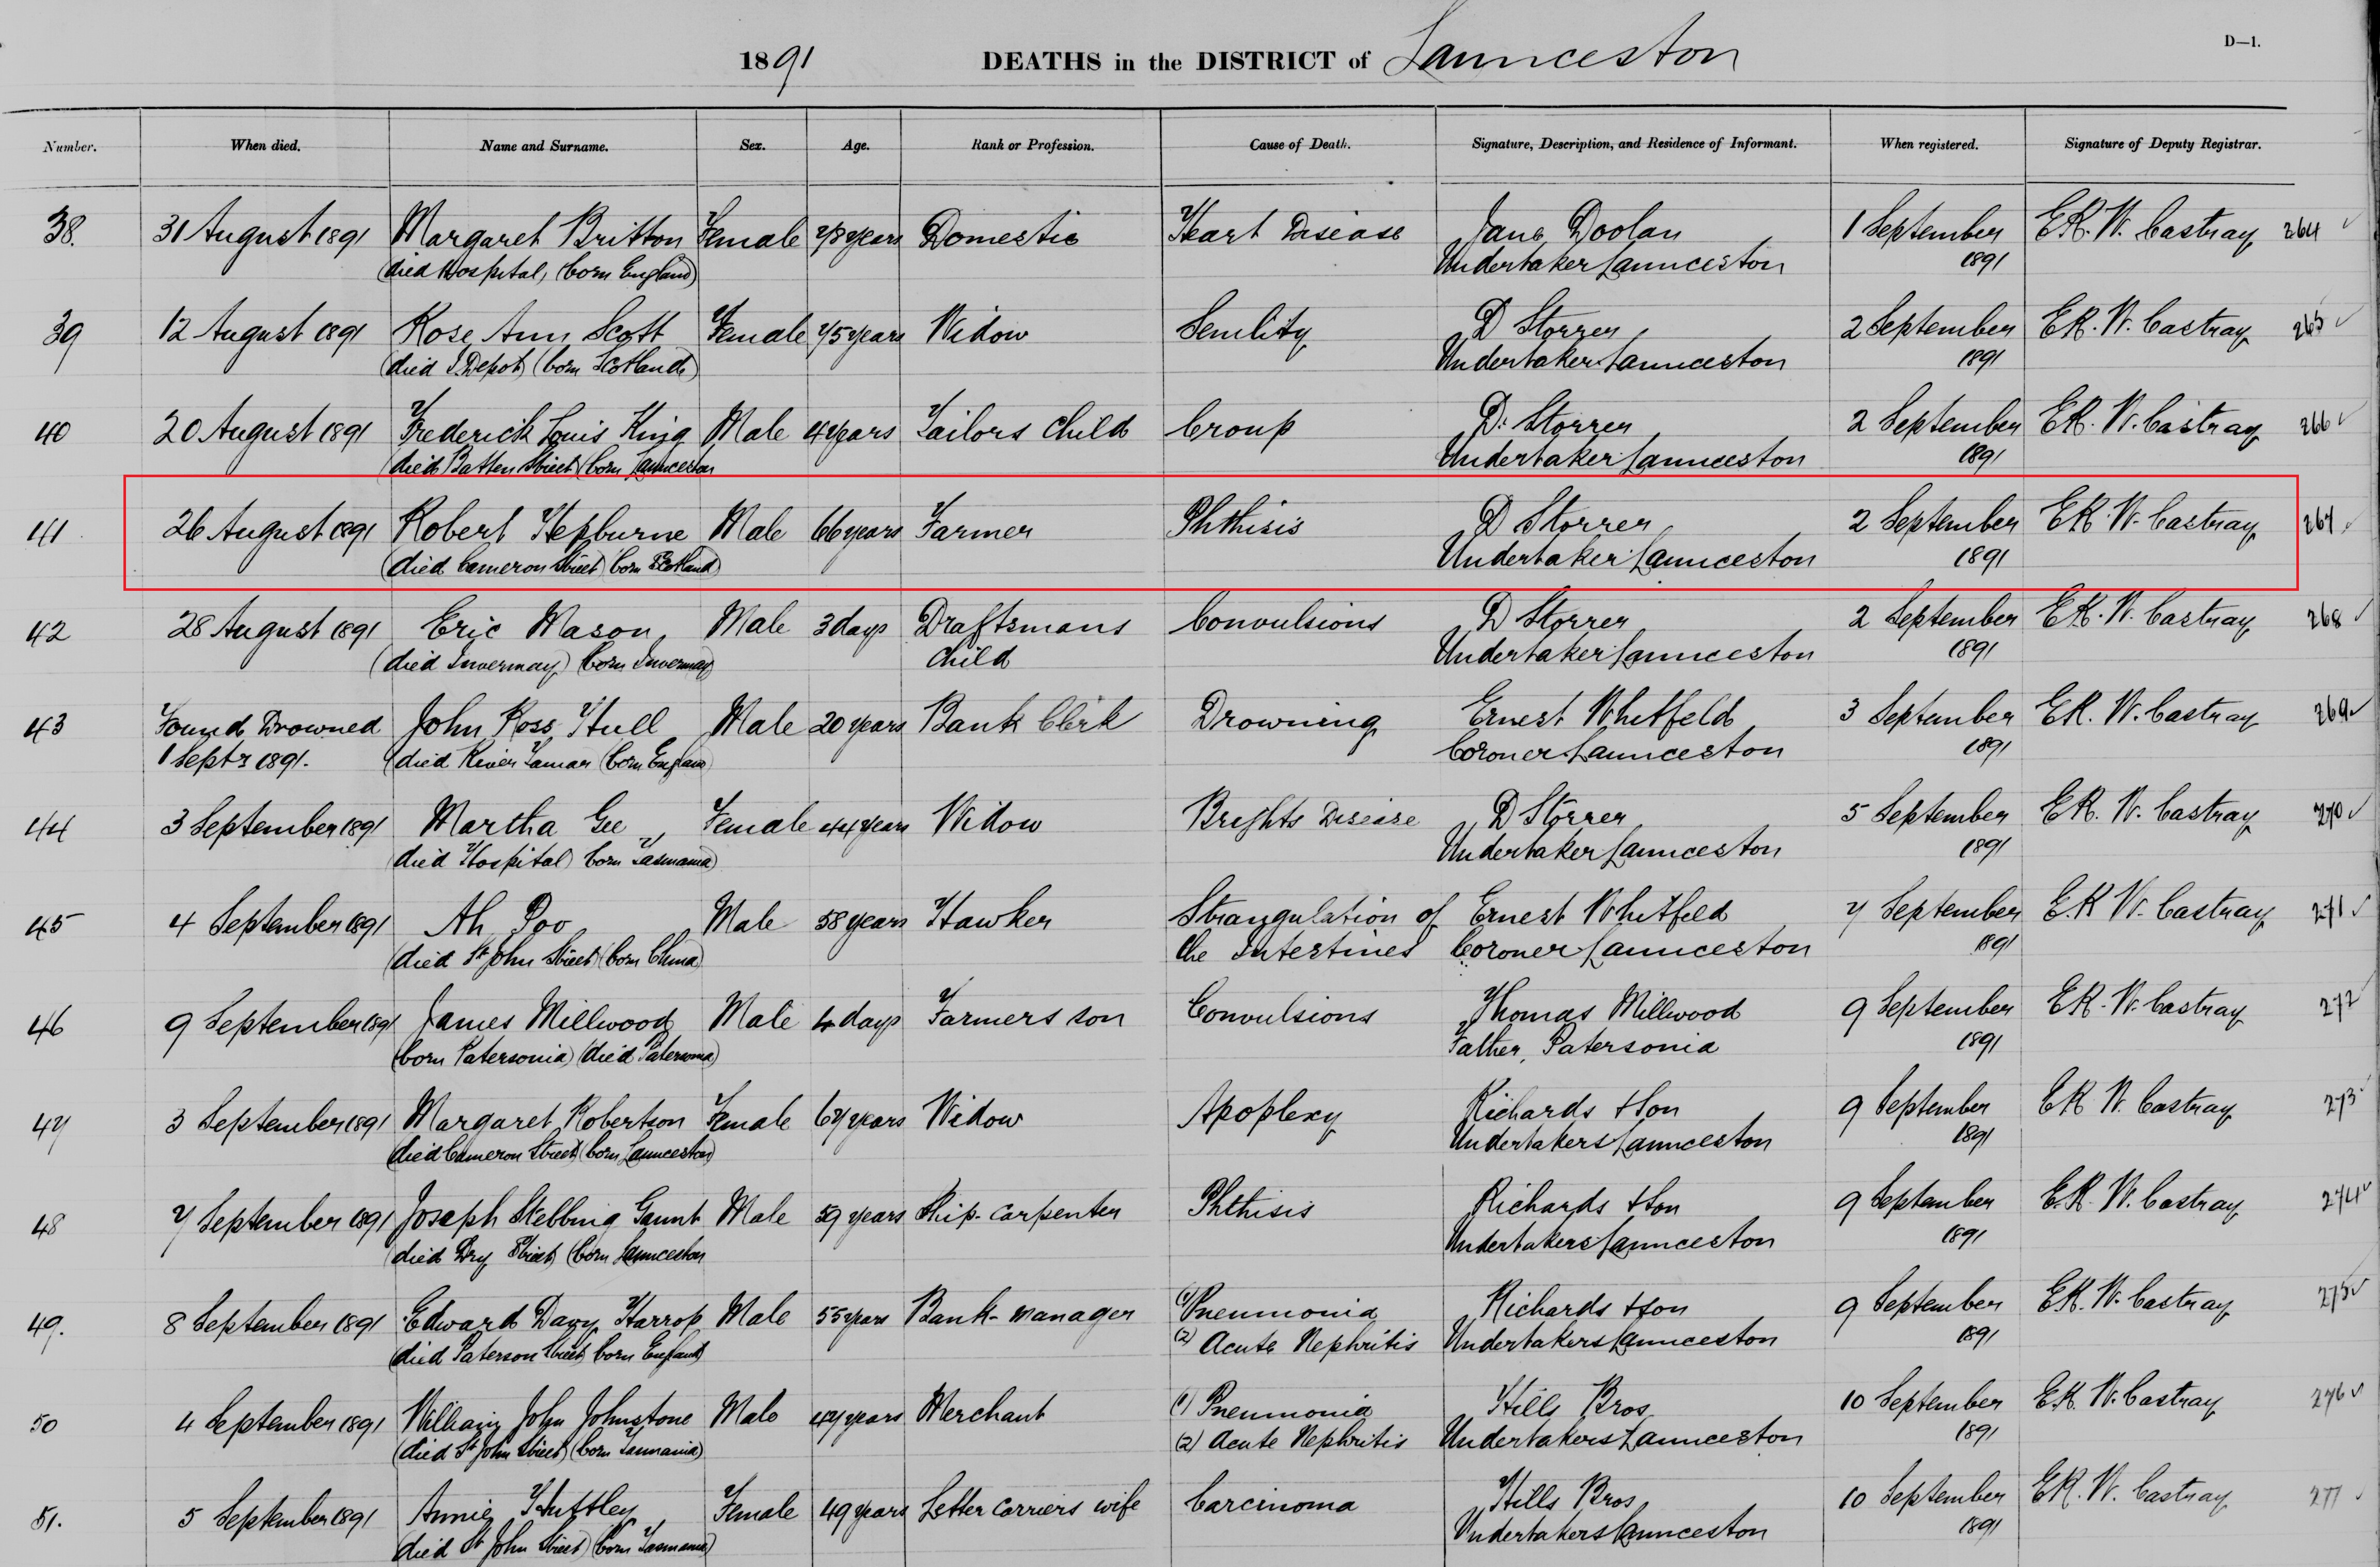 1891 DEATHS in the DISTRICT of Launceston D—1.
Number. When died. Name and Surname. Sex. Age. Rank or Profession. Cause of Death. Signature, Description, and Residence of Informant. When registered. Signature of Deputy Registrar.
38. 31 August 1891 Margaret Britton Female 78 years Domestic Heart Disease Jane Doolan 1 September E.R.W. Castray 264
(died Hospital, (born England) Undertaker Launceston 1891
39 12 August 1891 Rose Ann Scott Female 75 years Widow Senility D Storrer 2 September E.R.W. Castray 265
(died I.Depot) (born Scotland) Undertaker Launceston 1891
40 20 August 1891 Frederick Louis King Male 4 years Tailors Child Croup D. Storrer 2 September E.R.W. Castray 266
(died Batten Street) (born Launceston Undertaker Launceston 1891
41 26 August 1891 Robert Hepburne Male 66 years Farmer Phthisis D Storrer 2 September E.R.W. Castray 267
(died Cameron Street) (born Scotland) Undertaker Launceston 1891
42 28 August 1891 Eric Mason Male 3 days Draftsmans Convulsions D Storrer 2 September E.R.W. Castray 268
(died Invermay) (born Invermay) Child Undertaker Launceston 1891
43 Found Drowned John Ross Hull Male 20 years Bank Clerk Drowning Ernest Whitfeld 3 September E.R.W. Castray 269
1 Septr 1891. (died River Tamar (born England) Coroner Launceston 1891
44 3 September 1891 Martha Gee Female 44 years Widow Brights Disease D Storrer 5 September E.R.W. Castray 270
(died Hospital) born Tasmania) Undertaker Launceston 1891
45 4 September 1891 Ah Poo Male 58 years Hawker Strangulation of Ernest Whitfeld 7 September E.R.W. Castray 271
(died St John Street) (born China) the Intestines Coroner Launceston 1891
46 9 September 1891 James Millwood Male 4 days Farmers son Convulsions Thomas Millwood 9 September E.R.W. Castray 272
(born Patersonia) (died Patersonia) Father, Patersonia 1891
47 3 September 1891 Margaret Robertson Female 67 years Widow Apoplexy Richards & Son 9 September E.R.W. Castray 273
(died Cameron Street) (born Launceston) Undertakers Launceston 1891
48 7 September 1891 Joseph Stebbing Gaunt Male 59 years Ship-carpenter Phthisis Richards & Son 9 September E.R.W. Castray 274
(died Dry Street) (born Launceston Undertakers Launceston 1891
49. 8 September 1891 Edward Davy Harrop Male 55 years Bank-manager (1) Pneumonia Richards & Son 9 September E.R.W. Castray 275
(died Paterson Street) born England) (2) Acute Nephritis Undertakers Launceston 1891
50 4 September 1891 William John Johnstone Male 47 years Merchant (1) Pneumonia Hills Bros 10 September E.R.W. Castray 276
(died St John Street) (born Tasmania) (2) Acute Nephritis Undertakers Launceston 1891
51. 5 September 1891 Annie Huttley Female 49 years Letter Carriers wife Carcinoma Hills Bros 10 September E.R.W. Castray 277
(died St John Street) (born Tasmania) Undertakers Launceston 1891